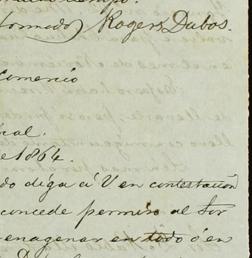 tiempo.
formado) Rogers Dubos.
Comercio
ral.
e 1864.
do diga á V en contestación
concede permiso al Sor
enagenar en todo ó en